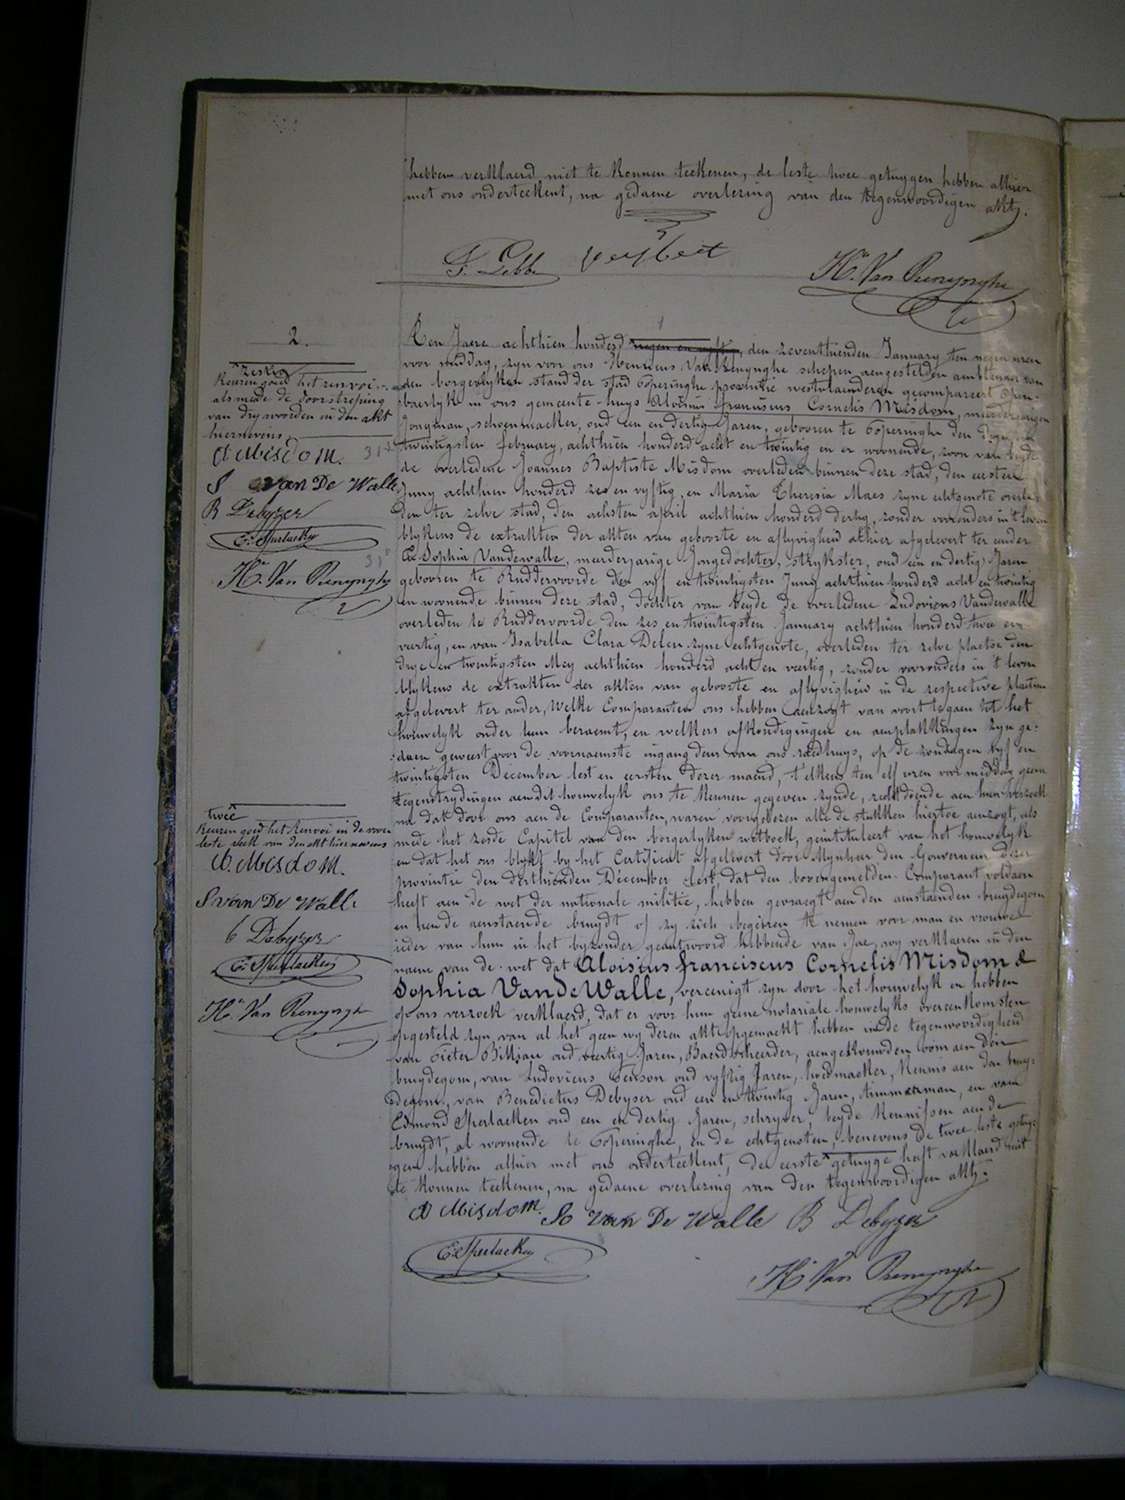 hebben verklaerd niet te konnen teekenen, de leste twee getuygen hebben alhier
met ons onderteekent, na gedaene overlezing van den tegenwoordigen akt.
F. Lebbe
H.n Van Renynghe
2.
zestig
Keuren goed het renvoi
alsmede de doorstreping
van dry woorden in den akt
hiernevens
A Misdom.
S van De Walle
B Debyzer
E. Sperlaeken
H.n Van Renynghe
Den Jaere achthien honderd negen en vyftig, den zeventhienden January ten negen uren
voor middag, zyn voor ons Henricus Van Renynghe schepen aengestelden ambtenaer van
den borgerlyken stand der stad Poperinghe provintie westvlaenderen gecompareert open-
baerlyk in ons gemeente-huys Aloisius franciscus Cornelis Misdom, meerderjarigen
Jongman, schoenmaeker, oud een en dertig Jaren, gebooren te Poperinghe den
twintigsten february achthien honderd acht en twintig en er woonende, zoon van beyde
de overledene Joannes Baptiste Misdom overleden binnen deze stad, den eersten
Juny achthien honderd zes en vyftig, en Maria Theresia Maes zyne echtgenote overle-
den ter zelve stad, den achsten april achthien honderd dertig, zonder voorouders in 't leven
blykens de extrakten der akten van geboorte en aflyvigheid alhier afgelevert ter eender
En Sophia Vandewalle, meerderjarige Jongedochter, strykster, oud een en dertig Jaren
gebooren te Ruddervoorde den vyf en twintigsten Juny achthien honderd acht en twintig
en woonende binnen deze stad, dochter van beyde de overledene Ludovicus Vandewalle
overleden te Ruddervoorde den zes en twintigsten January achthien honderd twee en
veertig, en van Isabella Clara Delen zyne echtgenote, overleden ter zelve plaetse den
drye en twintigsten Mey achthien honderd acht en veertig, zonder voorouders in 't leven
blykens de extrakten der akten van geboorte en aflyvigheid in de respective plaetsen
afgelevert ter ander, welke Comparanten ons hebben aenzogt van voort te gaen tot het
houwelyk onder hun beraemt, en welkers afkondigingen en aenplakkingen zyn ge-
daen geweest voor de voornaemste ingang deur van ons raedhuys, op de zondagen vyf en
twintigsten December lest en eersten dezer maend, t'elkens ten elf uren voor middag geene
tegenstrydingen aen dit houwelyk ons te kennen gegeven zynde, recht doende aen hun verzoek
na dat door ons aen de Comparanten, waren voorgelezen alle de stukken hiertoe aenzogt, als
mede het zesde Capitel van den borgerlyken wetboek, geintituleert van het houwelyk
en dat het ons blykt by het Certificat afgelevert door Mynheer den Gouverneur dezer
provintie den derthienden December lest dat den bovengemelden Comparant voldaen
heeft aen de wet der nationale militie, hebben gevraegt aen den aenstaenden bruydegom
en aen de aenstaende bruydt of zy zich begeiren te nemen voor man en vrouwe
ieder van hun in het byzonder geantwoord hebbende van Jae, wy verklaeren in den
naeme van de wet dat Aloisius franciscus Cornelis Misdom &
Sophia Van de Walle, vereenigt zyn door het houwelyk en hebben
op ons verzoek verklaerd, dat er voor hun geene notariale houwelyks overeenkomsten
opgesteld zyn, van al het geen wy dezen akt opgemaekt hebben in de tegenwoordigheid
van Pieter Billiau oud veertig Jaren, Baerdscheerder, aengetrouwden oom aen den
bruydegom, van Ludovicus Tenson oud vyftig Jaren, hoedmaeker, kennis aen den bruy-
degom, van Benedictus Debyser oud een en twintig Jaren, timmerman, en van
Edmond Sperlaeken oud een en dertig Jaren, schryver, beyde kennissen aen de
bruydt, al woonende te Poperinghe, en de echtgenoten, benevens de twee leste getuy-
gen hebben alhier met ons onderteekent, de eerste getuyge heeft verklaerd niet
te konnen teekenen, na gedaene overlezing van den tegenwoordigen akt.
twee
Keuren goed het Renvoi in de voor
leste reek van den akt hiernevens
A. Misdom.
S van De Walle
B Debyzer
E. Sperlaeken
H.n Van Renynghe
A Misdom. So van De Walle B Debyzer
E. Sperlaeken
H.n Van Renynghe